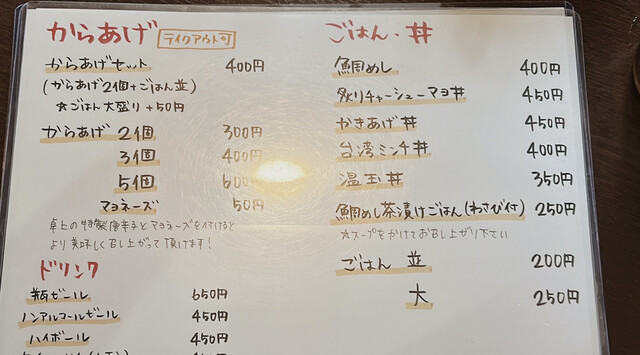 からあげ テイクアウト可
からあげセット 400円
(からあげ2個+ごはん並)
☆ごはん大盛り+50円
からあげ 2個 300円
3個 400円
5個 600円
マヨネーズ 50円
卓上の特製唐辛子とマヨネーズを付けると
より美味しく召し上がって頂けます!
ドリンク
瓶ビール 650円
ノンアルコールビール 450円
ハイボール 450円
ごはん・丼
鯛めし 400円
炙りチャーシューマヨ丼 450円
かきあげ丼 450円
台湾ミンチ丼 400円
温玉丼 350円
鯛めし茶漬けごはん(わさび付) 250円
☆スープをかけてお召し上がり下さい
ごはん 並 200円
大 250円